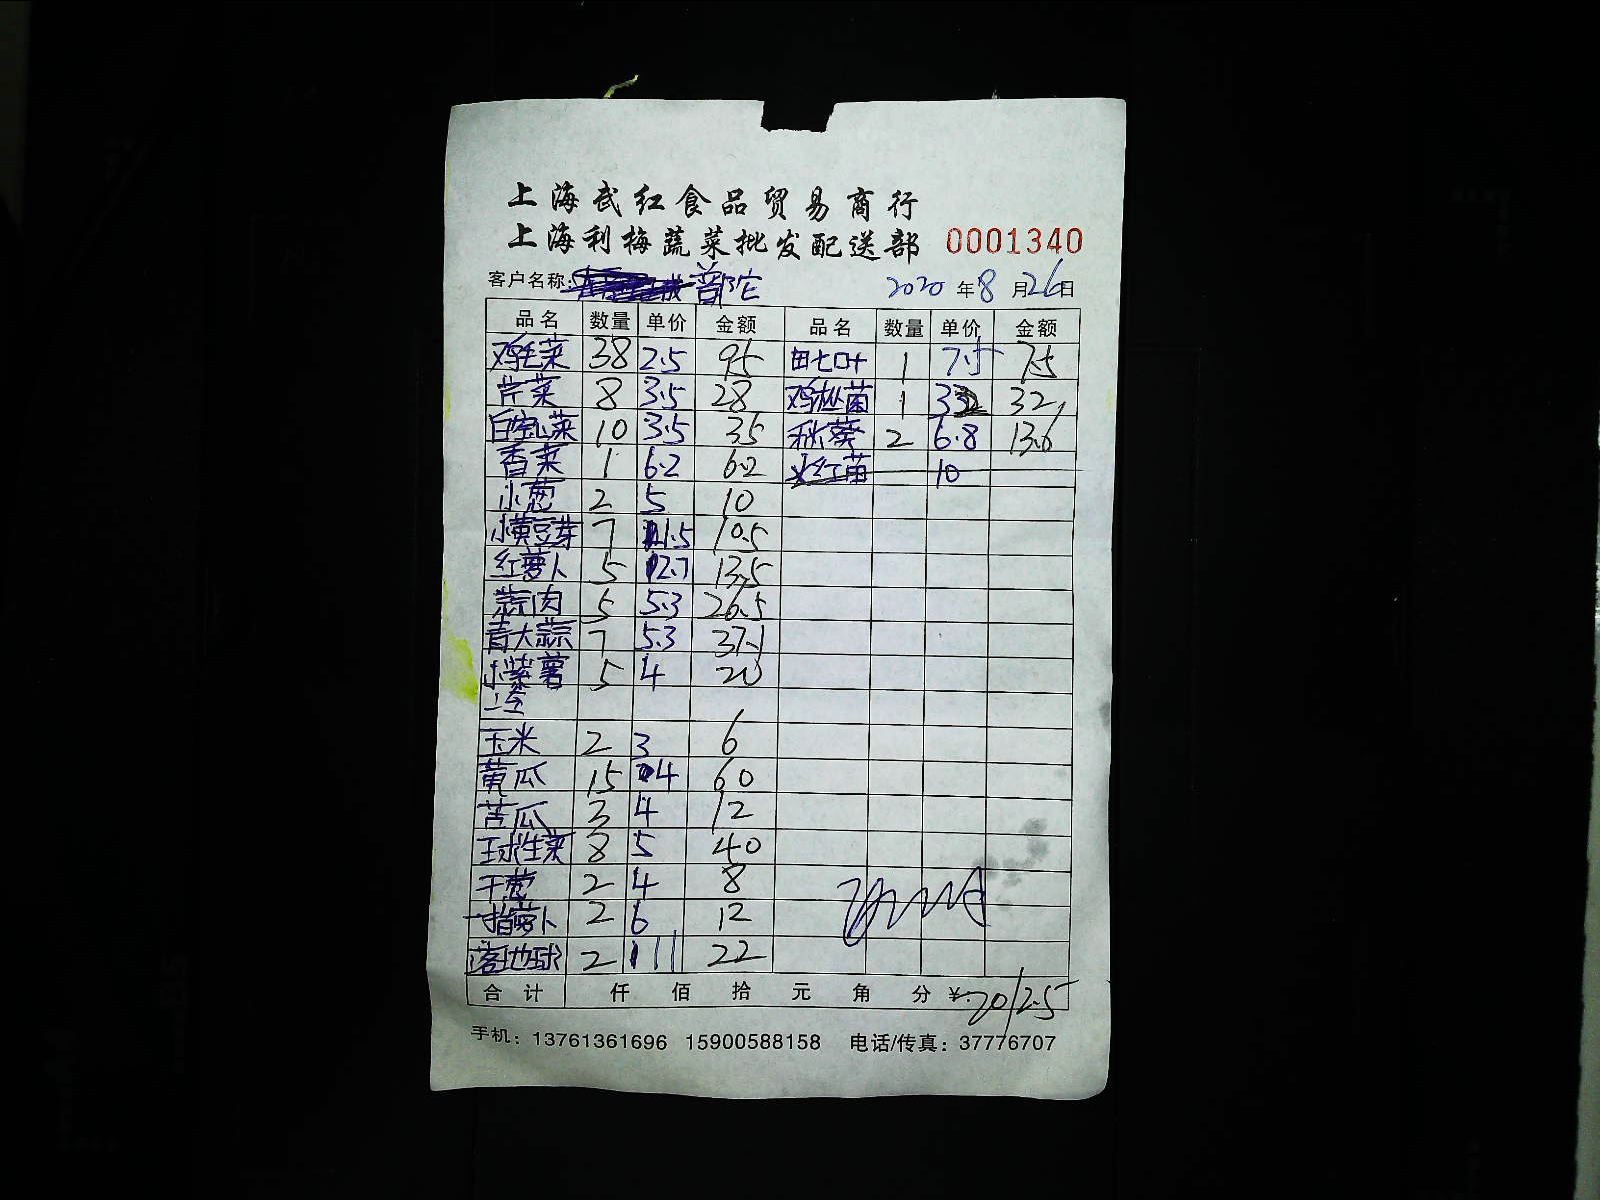 上海武红食品贸易商行
上海利梅蔬菜批发配送部 0001340
客户名称: 普陀 2020 年 8 月 26 日
品名 数量 单价 金额 品名 数量 单价 金额
鸡毛菜 38 2.5 95 田七叶 1 7.5 7.5
芹菜 8 3.5 28 鸡枞菌 1 32 32
白空心菜 10 3.5 35 秋葵 2 6.8 13.6
香菜 1 6.2 6.2 火红苗 10
小葱 2 5 10
小黄豆芽 7 1.5 10.5
红萝卜 5 2.7 13.5
蒜肉 5 5.3 26.5
青大蒜 7 5.3 37.1
小紫薯 5 4 20
玉米 2 3 6
黄瓜 15 4 60
苦瓜 3 4 12
球生菜 8 5 40
干葱 2 4 8
一指萝卜 2 6 12
落地球 2 11 22
合计 仟 佰 拾 元 角 分 ¥:
手机：13761361696 15900588158 电话/传真：37776707